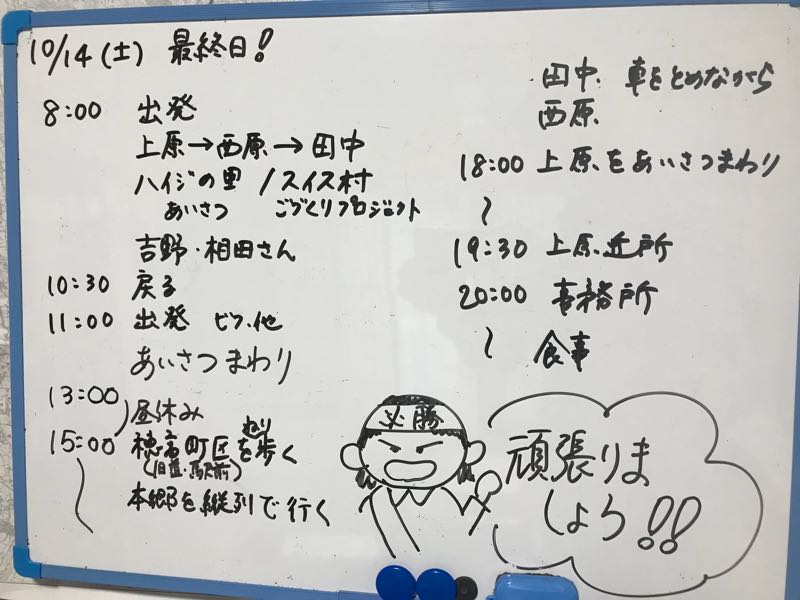 10/14(土) 最終日!
8:00 出発
上原→西原→田中
ハイジの里 /スイス村
あいさつ こづくりプロジェクト
吉野・相田さん
10:30 戻る
11:00 出発 ビラ.他
あいさつまわり
13:00
昼休み
15:00 穂高町区を歩く
本郷を縦列で行く
田中. 車をとめながら
西原.
18:00 上原をあいさつまわり
〜
19:30 上原.近所
20:00 事務所
〜 食事
必勝
頑張りま
しょう!!